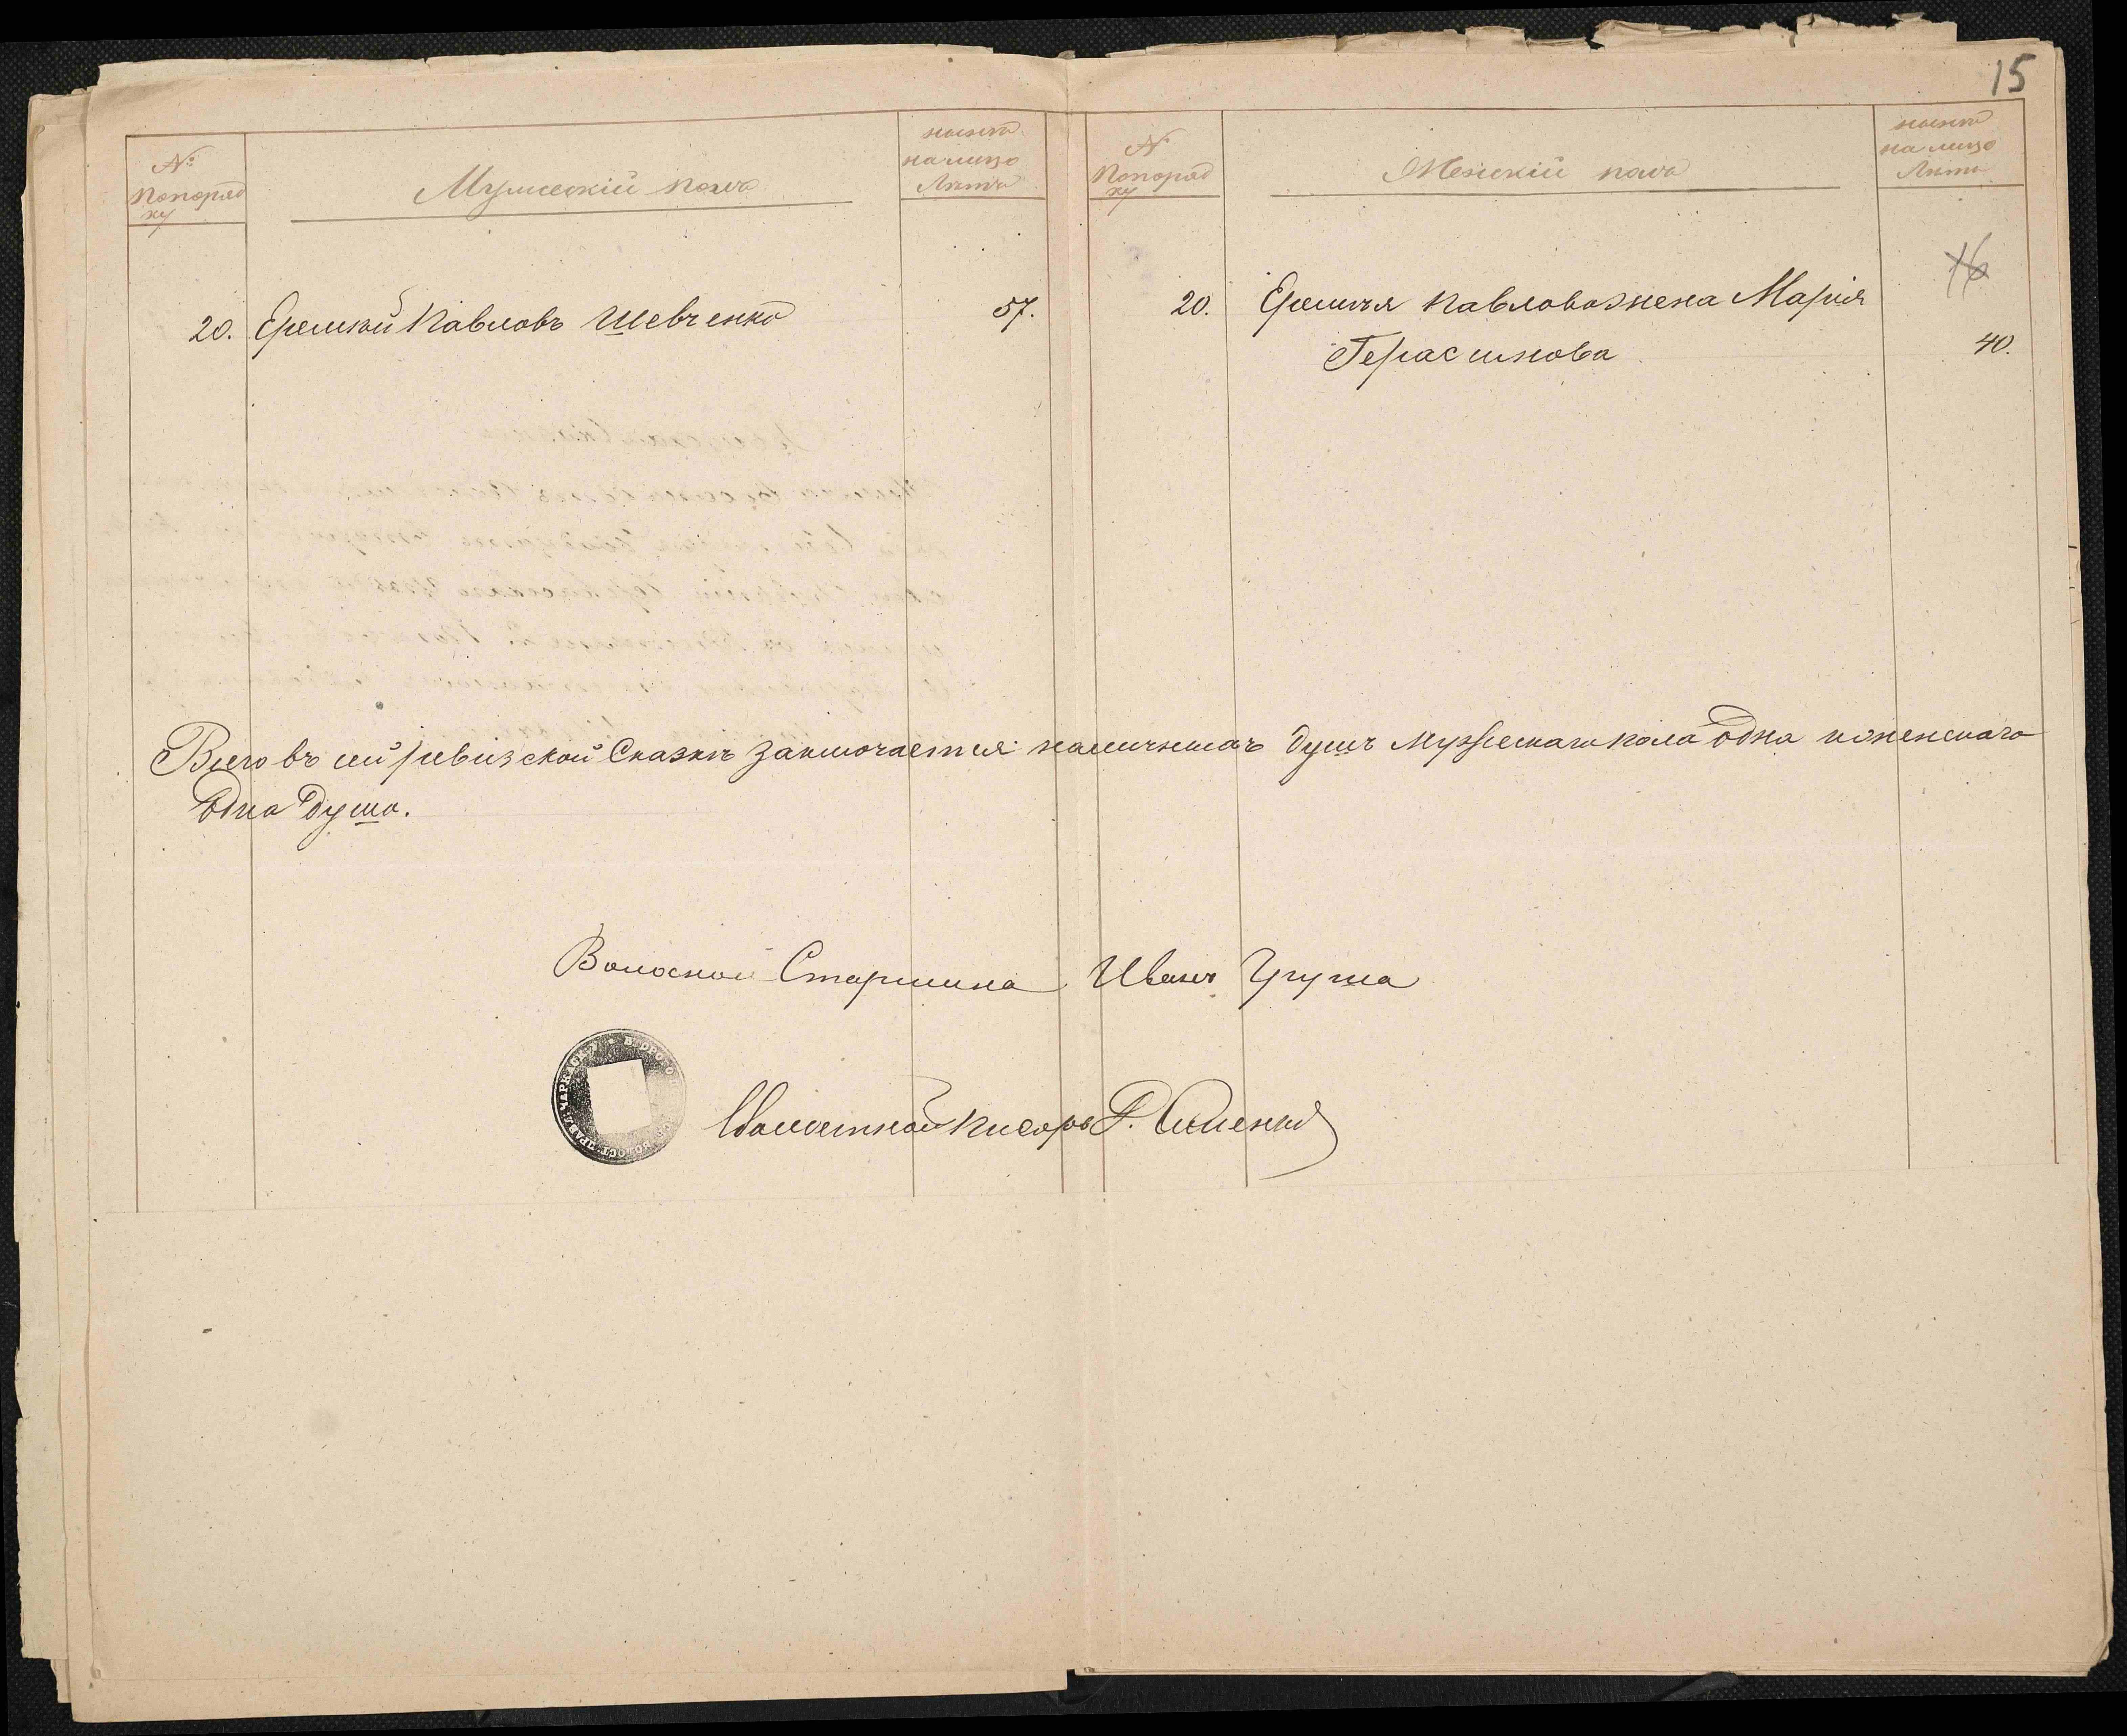 15
№
попоряд
ку
Мужескій полъ
ныне
налицо
Лета
№
попоряд
ку
Женскій полъ
ныне
на лицо
Лета
16
20. Еремій Павловъ Шевченко 57.
20. Еремія Павлова жена Марія
Герасимова 40.
Всего въ сей ревизской Сказкѣ заключается наличныхъ душъ Мужескаго пола одна и женскаго
одна душа.
Волосной Старшина Иванъ Груша
Волостной писарь